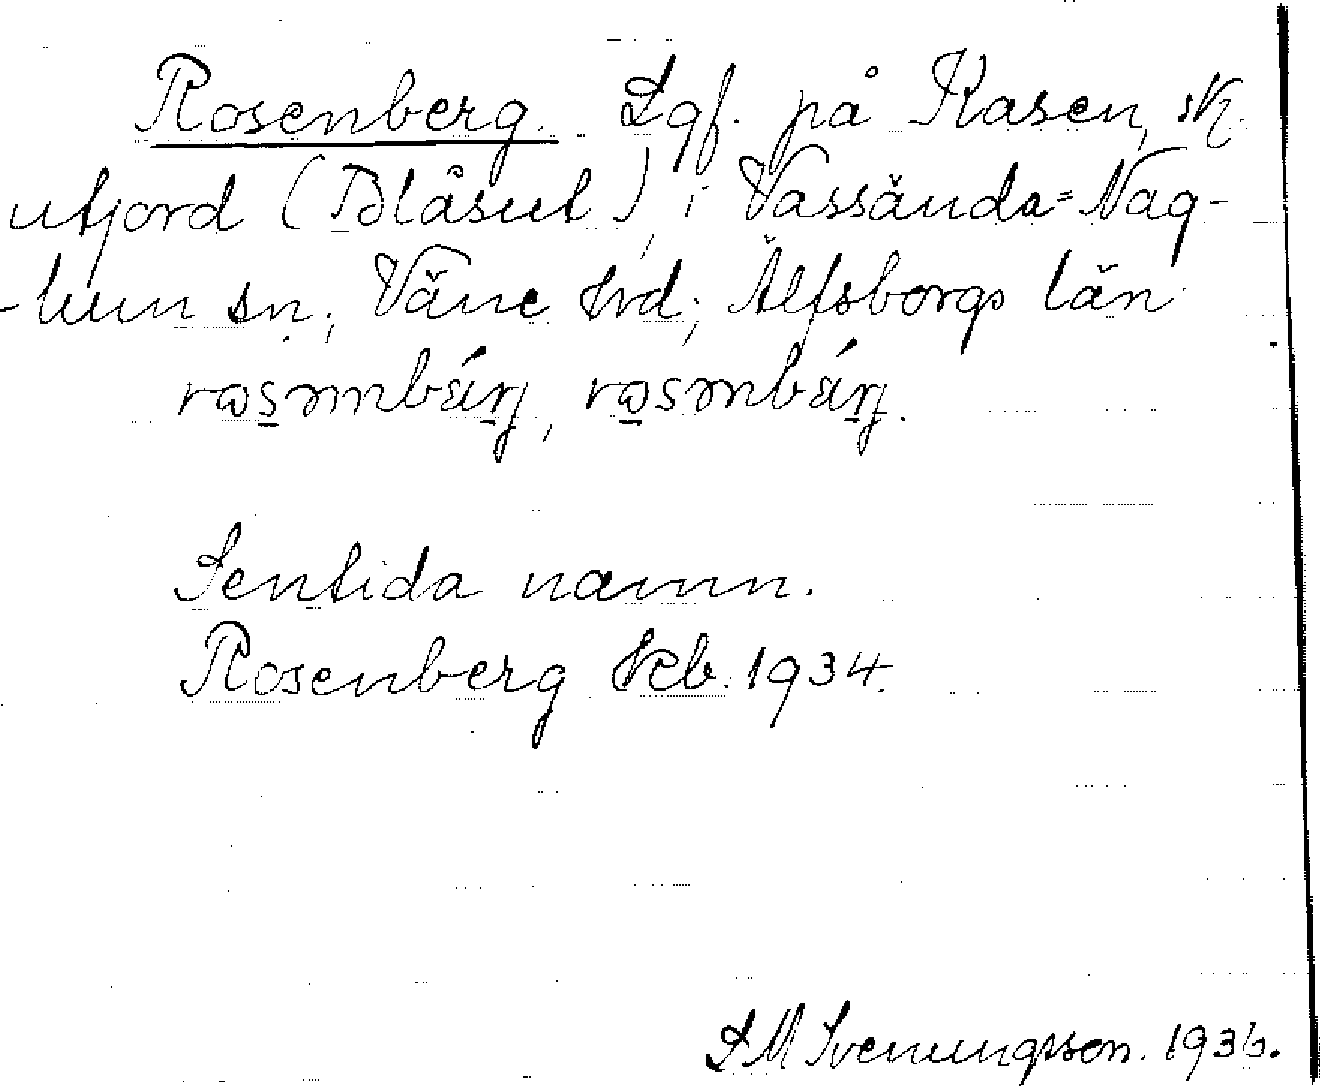 Rosenberg. Lgf. på Kasen, sk.
utjord (Blåsut), i Vassända-Nag-
-lum sn; Väne hrd; Älfsborgs län
Sentida namn.
Rosenberg Kcb. 1934.
S M Svenungsson. 1936.